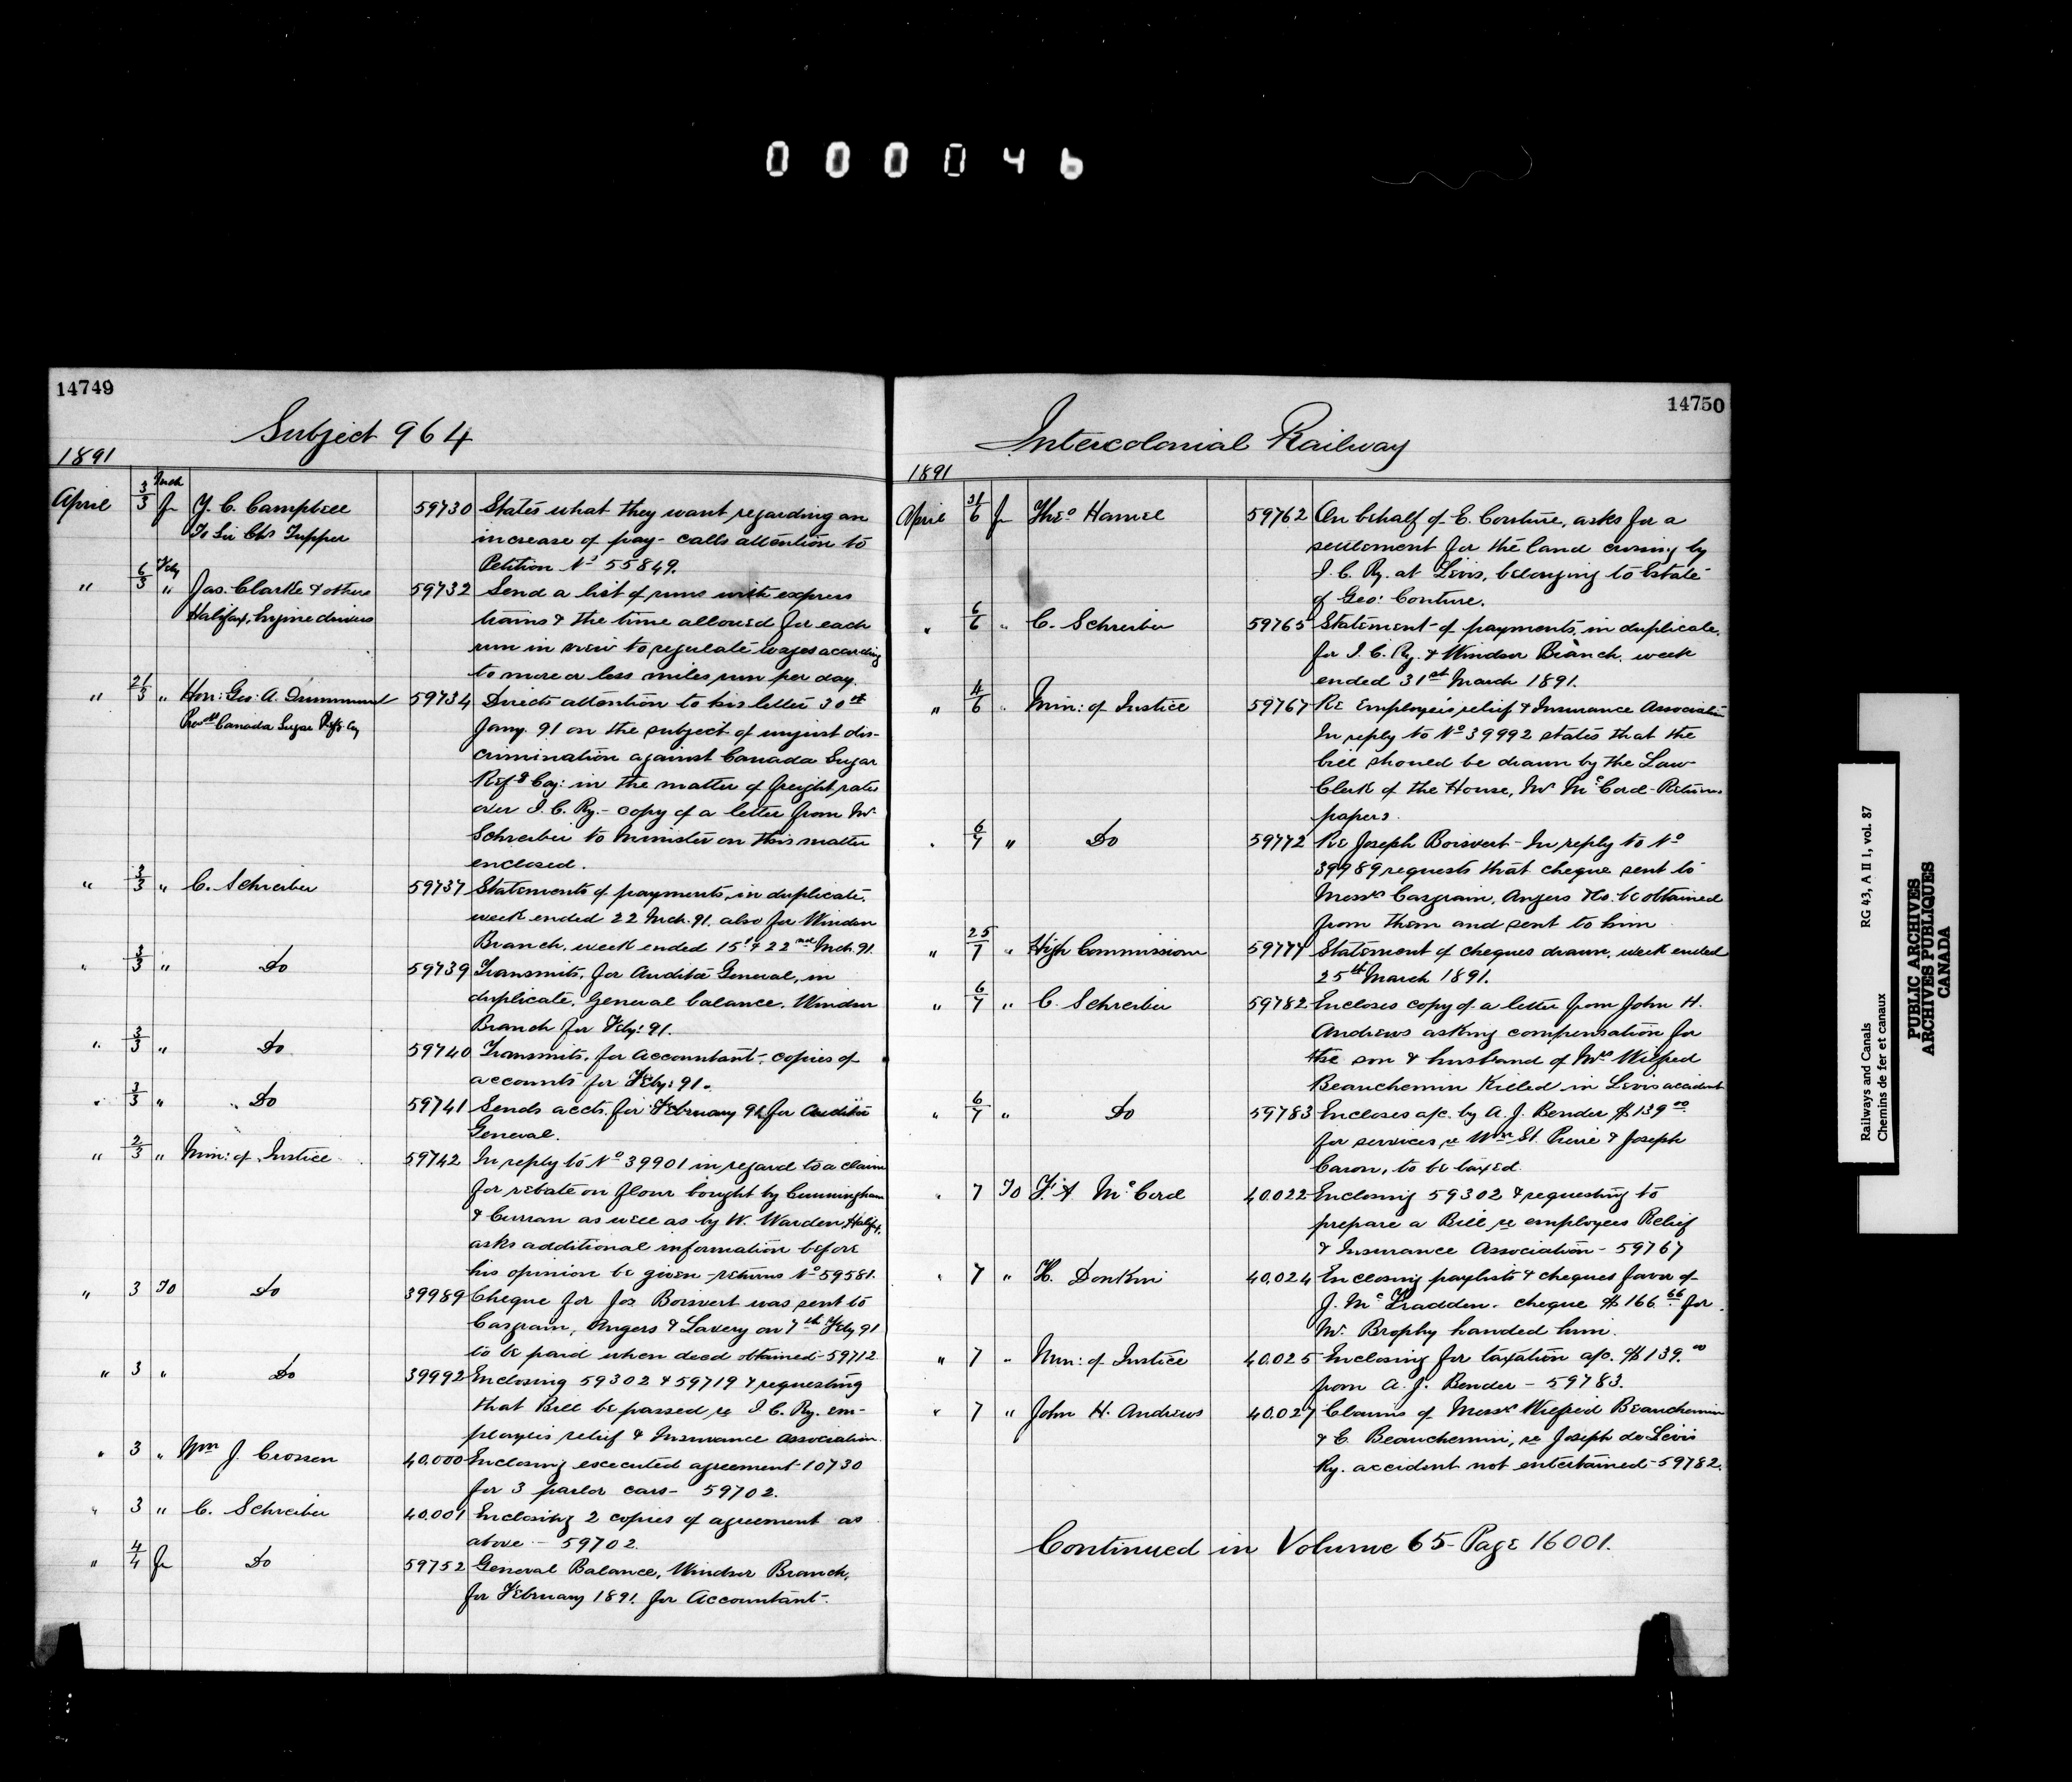 000046
14749
Subject 964
1891
April 3/3 Mch fr Y. C. Campbell 59730 States what they want regarding an
To Sir Chs Tupper increase of pay - calls attention to
Petition No 55849.
" 6/3 Feby " Jas. Clarke & others 59732 Send a list of runs with express
Halifax, Engine drivers trains & the time allowed for each
run in view to regulate wages according
to more or less miles run per day.
" 21/3 " Hon: Geo: A. Drummond 59734 Directs attention to his letter 30th
Canada Sugar Refg. Coy Jany. 91 on the subject of unjust dis-
crimination against Canada Sugar
Refg Coy: in the matter of freight rates
over I. C. Ry. - copy of a letter from Mr
Schreiber to Minister on this matter
enclosed.
" 3/3 " C. Schreiber 59737 Statements of payments, in duplicate,
week ended 22 Mch. 91. also for Windsor
Branch, week ended 15th & 22nd Mch. 91.
" 3/3 " Do 59739 Transmits, for Auditor General, in
duplicate, General balance, Windsor
Branch for Feby: 91.
" 3/3 " Do 59740 Transmits, for Accountant, copies of
accounts for Feby: 91.
" 3/3 " Do 59741 Sends accts. for February 91. for Auditor
General.
" 2/3 " Min: of Justice 59742 In reply to No 39901 in regard to a claim
for rebate on flour bought by Cunningham
& Curran as well as by W. Warden, Halifx,
asks additional information before
his opinion be given - returns No 59581.
" 3 To Do 39989 Cheque for Jos Boisvert was sent to
Casgrain, Angers & Lavery on 7th Feby 91
to be paid when deed obtained - 59712
" 3 " Do 39992 Enclosing 59302 & 59719 & requesting
that Bill be passed re I. C. Ry. em-
ployees relief & Insurance Association
" 3 " Wm J. Crossen 40.000 Enclosing executed agreement 10730
for 3 parlor cars - 59702.
" 3 " C. Schreiber 40.001 Enclosing 2 copies of agreement as
above - 59702.
" 4/4 fr Do 59752 General Balance, Windsor Branch,
for February 1891. for Accountant.
14750
Intercolonial Railway
1891
April 31/6 fr Theo Hamel 59762 On behalf of E. Couture, asks for a
settlement for the land crossing by
I. C. Ry. at Levis, belonging to Estate
of Geo: Couture.
" 6/6 " C. Schreiber 59765 Statement of payments, in duplicate,
for I. C. Ry. & Windsor Branch, week
ended 31st March 1891.
" 4/6 " Min: of Justice 59767 Re Employees relief & Insurance Association
In reply to No 39992 states that the
bill should be drawn by the Law
Clerk of the House, Mr McCord - Returns
papers.
" 6/7 " Do 59772 Re Joseph Boisvert - In reply to No
39989 requests that cheque sent to
Messrs Casgrain, Angers &Co. be obtained
from them and sent to him
" 25/7 " High Commissioner 59777 Statement of cheques drawn, week ended
25th March 1891.
" 6/7 " C. Schreiber 59782 Encloses copy of a letter from John H.
Andrews asking compensation for
the son & husband of Mrs Wilfred
Beauchemin killed in Levis accident
" 6/7 " Do 59783 Encloses a/c. by A. J. Bender $139 00
for services re Wm St. Pierre & Joseph
Caron, to be taxed.
" 7 To F. A McCord 40.022 Enclosing 59302 & requesting to
prepare a Bill re employees Relief
& Insurance Association - 59767
" 7 " H. Donkin 40.024 Enclosing paylists & cheques favor of
J. Mc cheque $166.66 for
Mr. Brophy handed him.
" 7 " Min: of Justice 40.025 Enclosing for taxation a/c. $139.00
from A. J. Bender - 59783.
" 7 " John H. Andrews 40.027 Claims of Messrs Wilfrid Beauchemin
& E. Beauchemin, re Joseph de Lévis
Ry. accident not entertained - 59782.
Continued in Volume 65 - Page 16001.
Railways and Canals RG 43, A II 1, vol. 87
Chemins de fer et canaux
PUBLIC ARCHIVES
ARCHIVES PUBLIQUES
CANADA